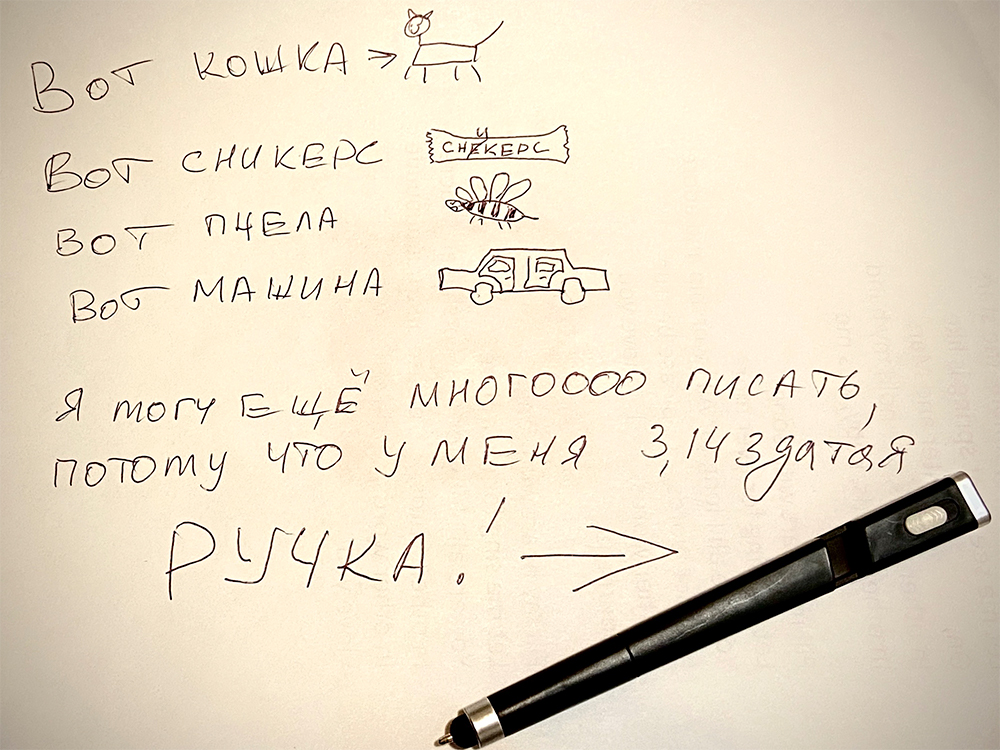 Вот кошка →
Вот сникерс СНИКЕРС
Вот пчела
Вот машина
Я могу ЕЩЁ многоооо писать,
потому что у меня 3,14здатая
РУЧКА! →